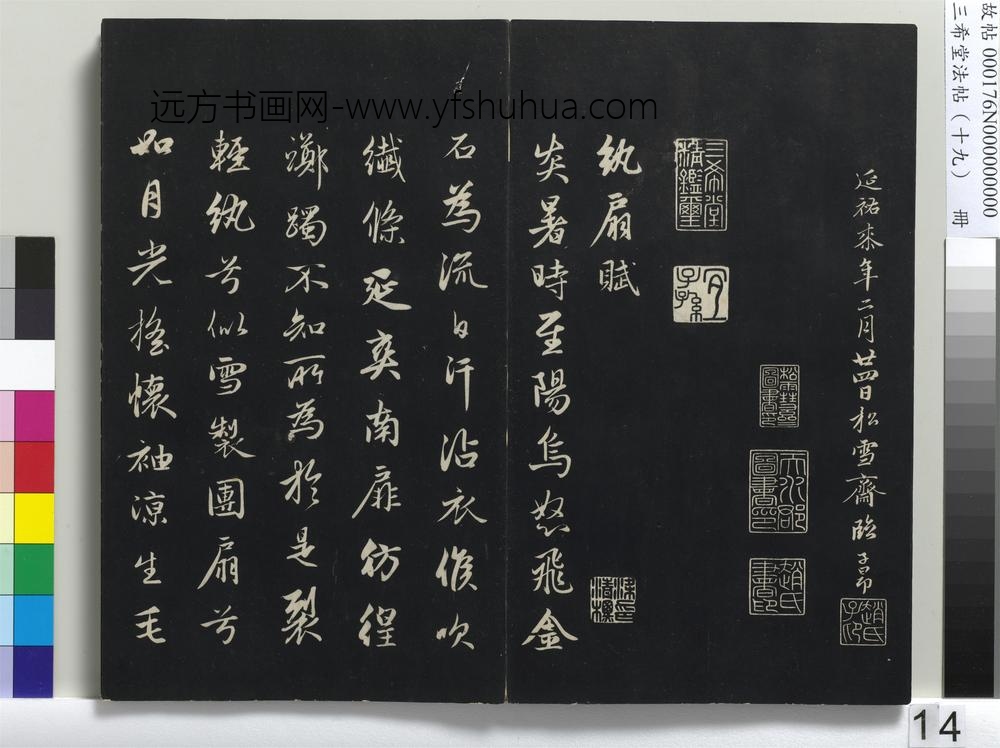 故帖 000176N00000000
三希堂法帖（十九） 冊
远方书画网-www.yfshuhua.com
延祐柒年二月廿四日松雪齋臨 子昂
趙氏子印
松雪齋圖書印
天水郡圖書印
趙氏書印
三希堂精鑑璽
宜子孫
紈扇賦
炎暑時至陽烏怒飛金
石為流白汗沾衣候吹
纖條延爽南扉彷徨
躑躅不知所為於是裂
輕紈兮似雪製團扇兮
如月光搖懷袖涼生毛
14